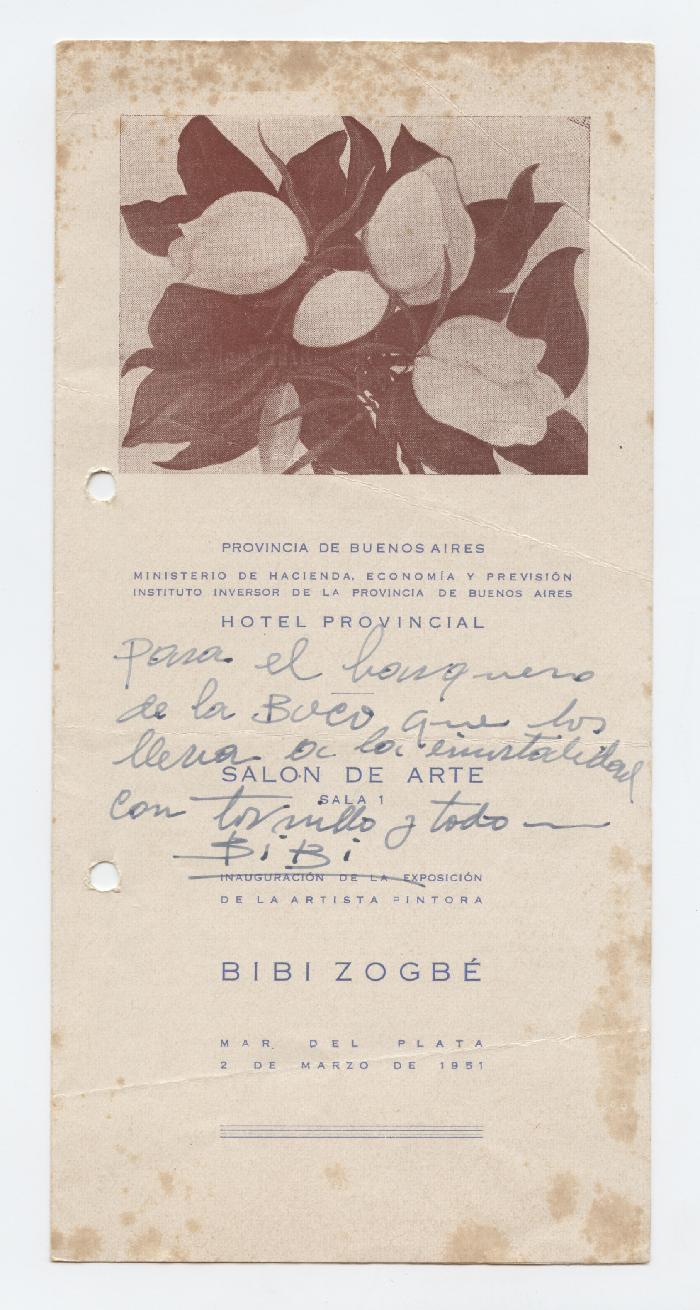 PROVINCIA DE BUENOS AIRES
MINISTERIO DE HACIENDA, ECONOMÍA Y PREVISIÓN
INSTITUTO INVERSOR DE LA PROVINCIA DE BUENOS AIRES
HOTEL PROVINCIAL
Para el barquero
de la Boca que los
lleva a la inmortalidad
SALON DE ARTE
SALA 1
con tornillo y todo —
BiBi
INAUGURACIÓN DE LA EXPOSICIÓN
DE LA ARTISTA PINTORA
BIBI ZOGBÉ
MAR DEL PLATA
2 DE MARZO DE 1951